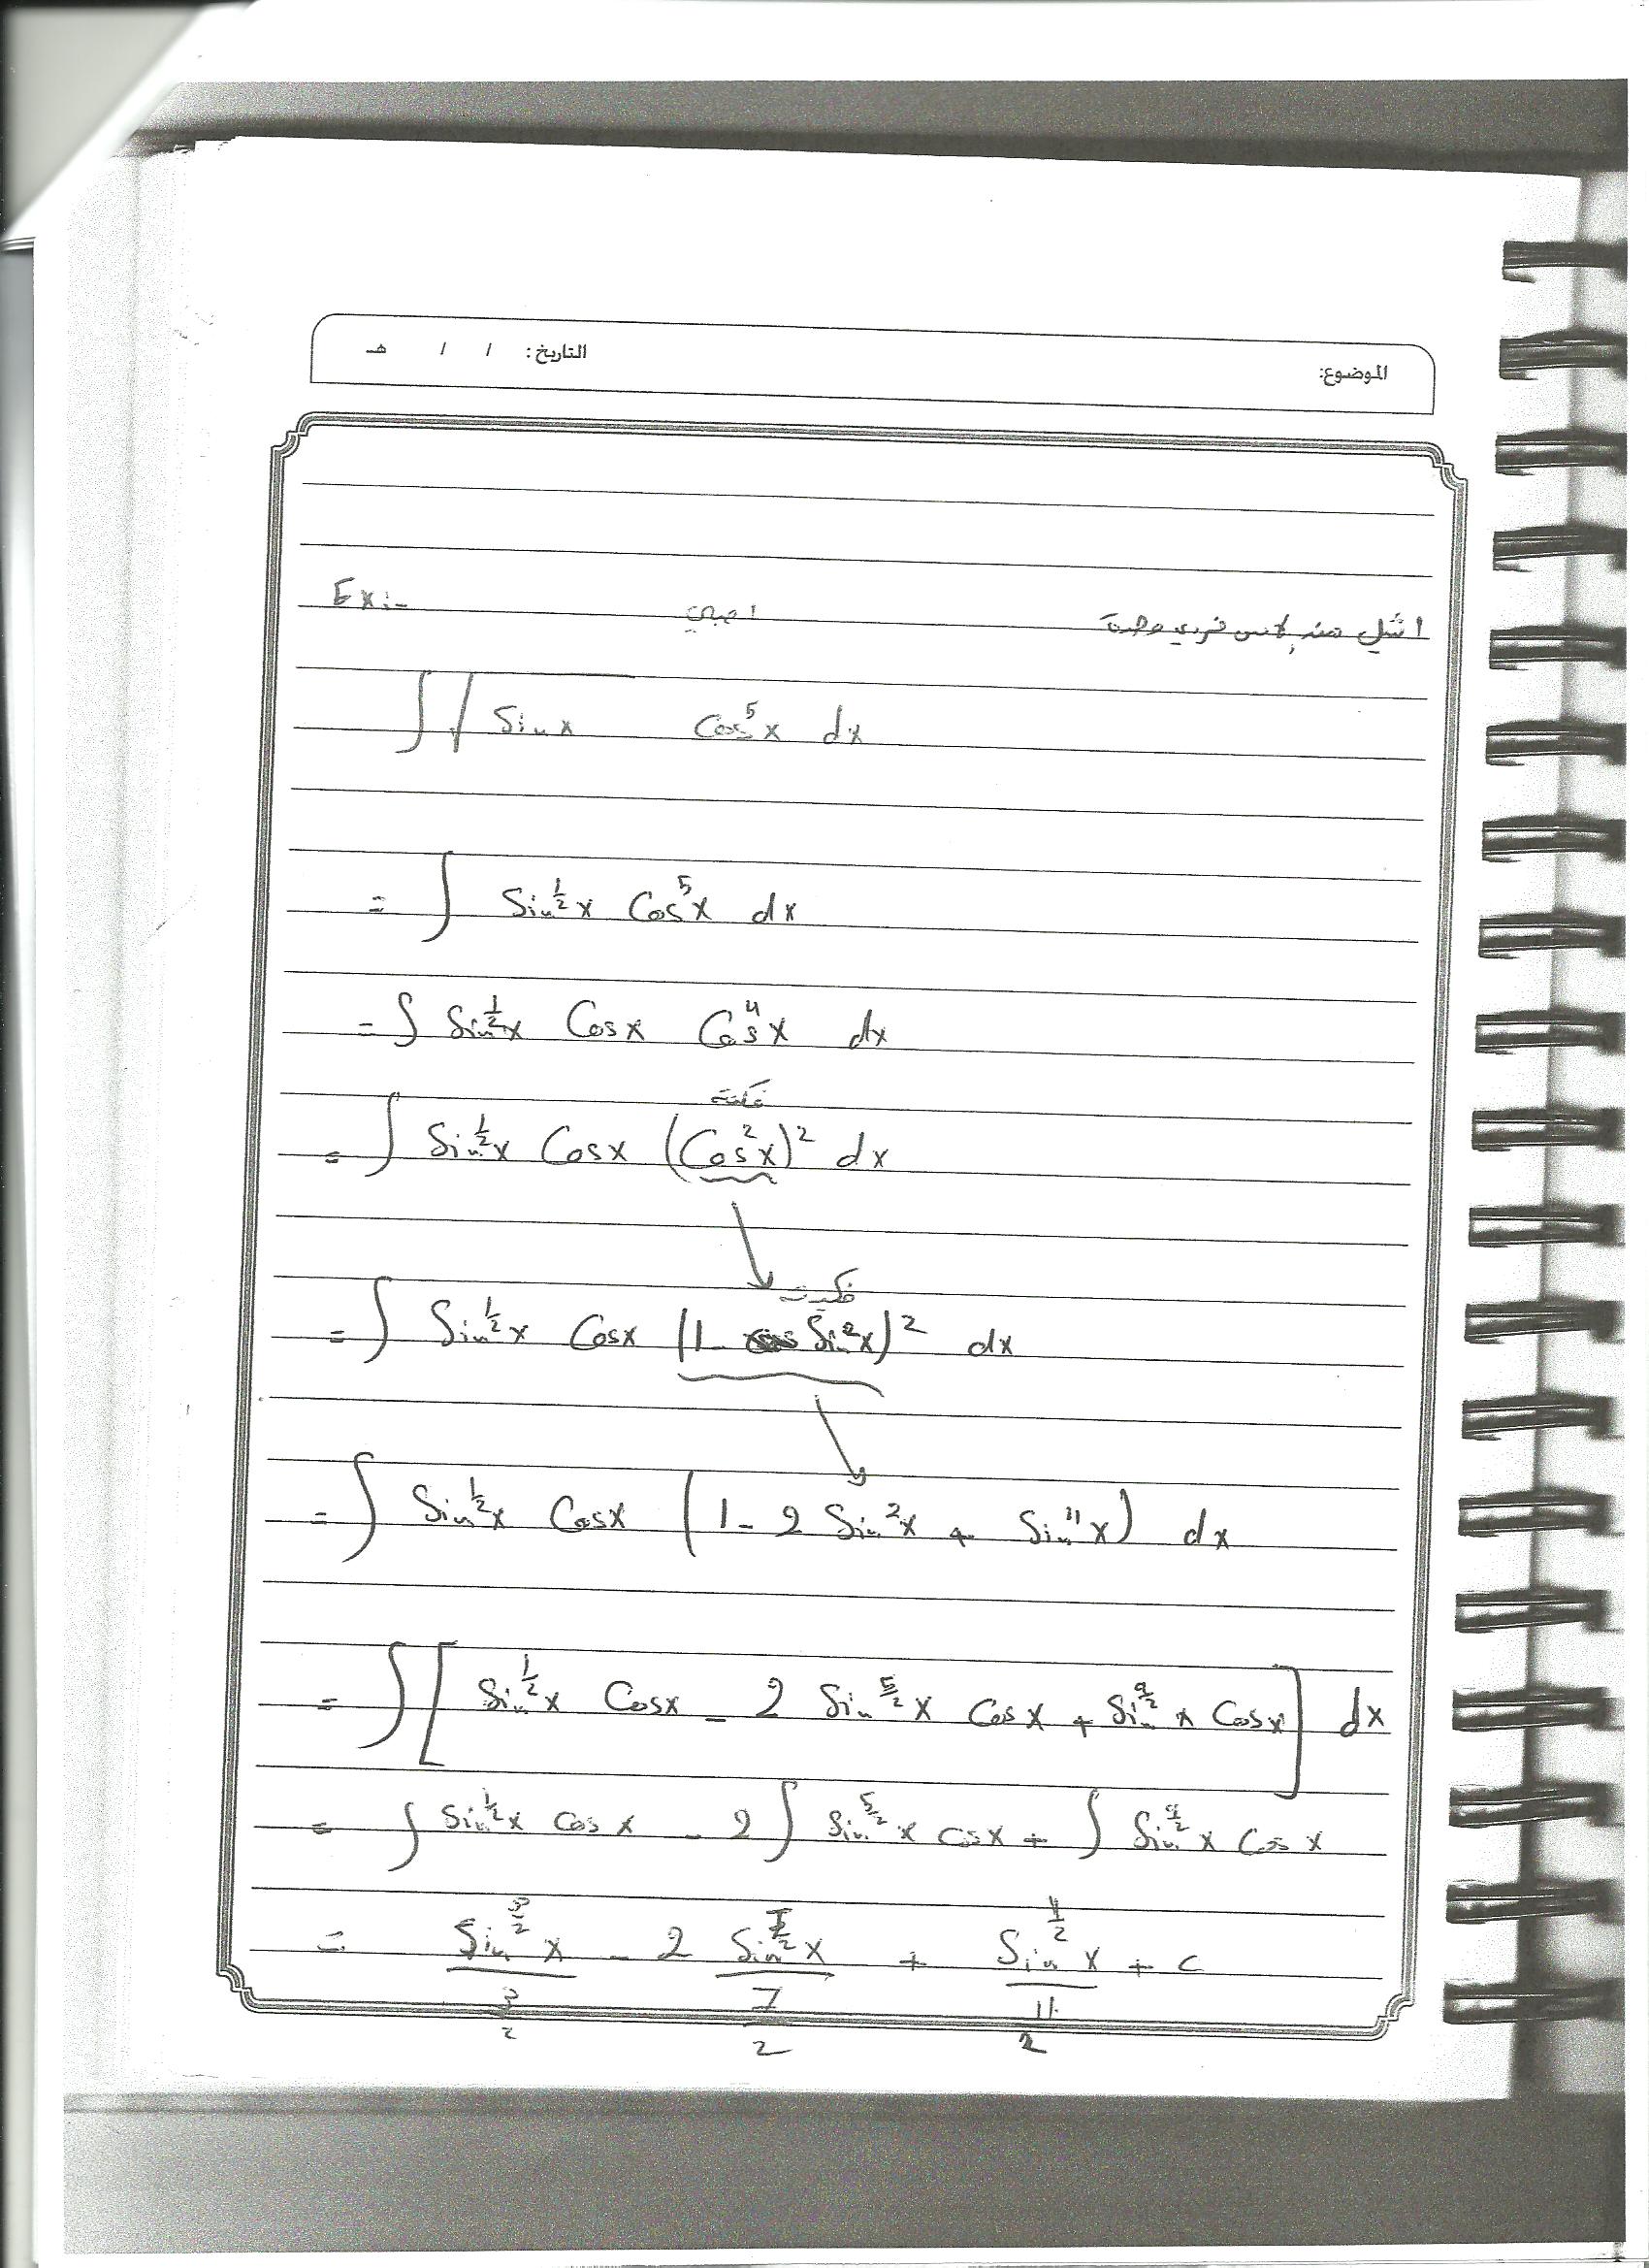 الموضوع: التاريخ: / / هـ
Ex:-
∫√sin x cos⁵x dx
= ∫ Sin^½x Cos⁵x dx
= ∫ Sin^½x Cosx Cos⁴x dx
= ∫ Sin^½x Cosx (Cos²x)² dx
= ∫ Sin^½x Cosx (1 - Sin²x)² dx
= ∫ Sin^½x Cosx (1 - 2 Sin²x + Sin⁴x) dx
= ∫[ Sin^½x Cosx - 2 Sin^(5/2)x Cosx + Sin^(9/2)x Cosx ] dx
= ∫ Sin^½x Cosx - 2 ∫ Sin^(5/2)x Cosx + ∫ Sin^(9/2)x Cosx
= Sin^(3/2)x / (3/2) - 2 Sin^(7/2)x / (7/2) + Sin^(11/2)x / (11/2) + c